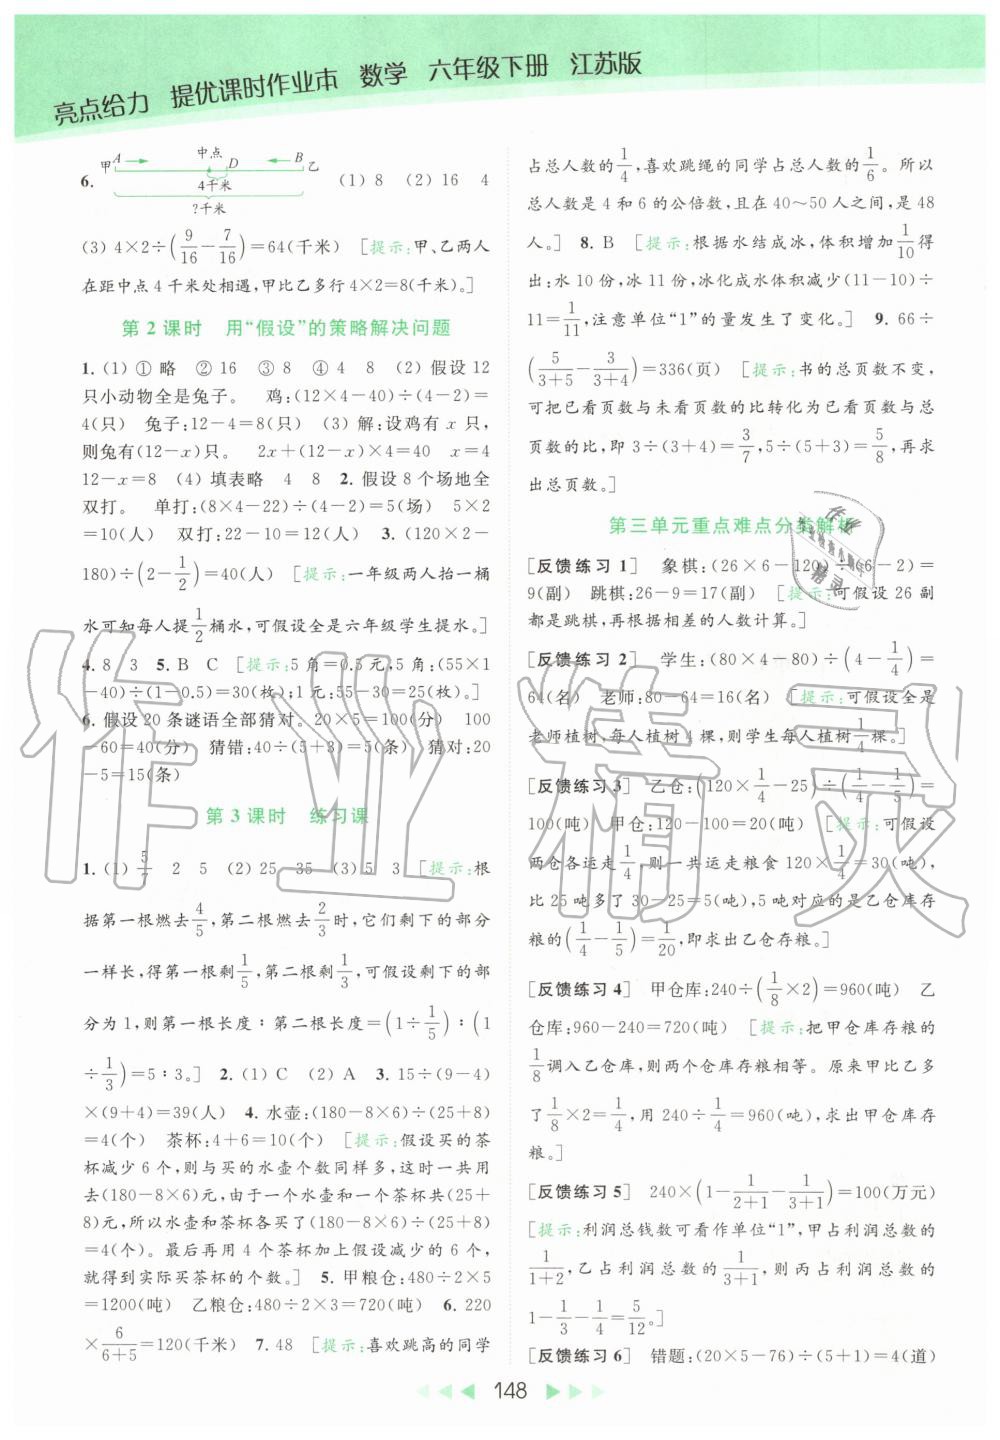 亮点给力 提优课时作业本 数学 六年级下册 江苏版
甲 A 中点 D B 乙
4千米
?千米
6. (1) 8 (2) 16 4
(3) 4×2÷(9/16-7/16)=64(千米) [提示:甲、乙两人
在距中点4千米处相遇,甲比乙多行4×2=8(千米)。]
第2课时 用“假设”的策略解决问题
1. (1) ① 略 ② 16 ③ 8 ④ 4 8 (2) 假设12
只小动物全是兔子。 鸡:(12×4-40)÷(4-2)=
4(只) 兔子:12-4=8(只) (3) 解:设鸡有x只,
则兔有(12-x)只。 2x+(12-x)×4=40 x=4
12-x=8 (4) 填表略 4 8 2. 假设8个场地全
双打。 单打:(8×4-22)÷(4-2)=5(场) 5×2
=10(人) 双打:22-10=12(人) 3. (120×2-
180)÷(2-1/2)=40(人) [提示:一年级两人抬一桶
水可知每人提1/2桶水,可假设全是六年级学生提水。]
4. 8 3 5. B C [提示:5角=0.5元,5角:(55×1
-40)÷(1-0.5)=30(枚);1元:55-30=25(枚)。]
6. 假设20条谜语全部猜对。20×5=100(分) 100
-60=40(分) 猜错:40÷(5+3)=5(条) 猜对:20
-5=15(条)
第3课时 练习课
1. (1) 5/7 2 5 (2) 25 35 (3) 5 3 [提示:根
据第一根燃去4/5,第二根燃去2/3时,它们剩下的部分
一样长,得第一根剩1/5,第二根剩1/3,可假设剩下的部
分为1,则第一根长度∶第二根长度=(1÷1/5)∶(1
÷1/3)=5∶3。] 2. (1) C (2) A 3. 15÷(9-4)
×(9+4)=39(人) 4. 水壶:(180-8×6)÷(25+8)
=4(个) 茶杯:4+6=10(个) [提示:假设买的茶
杯减少6个,则与买的水壶个数同样多,这时一共用
去(180-8×6)元,由于一个水壶和一个茶杯共(25+
8)元,所以水壶和茶杯各买了(180-8×6)÷(25+8)
=4(个)。最后再用4个茶杯加上假设减少的6个,
就得到实际买茶杯的个数。] 5. 甲粮仓:480÷2×5
=1200(吨) 乙粮仓:480÷2×3=720(吨) 6. 220
×6/(6+5)=120(千米) 7. 48 [提示:喜欢跳高的同学
占总人数的1/4,喜欢跳绳的同学占总人数的1/6。所以
总人数是4和6的公倍数,且在40～50人之间,是48
人。] 8. B [提示:根据水结成冰,体积增加1/10得
出:水10份,冰11份,冰化成水体积减少(11-10)÷
11=1/11,注意单位“1”的量发生了变化。] 9. 66÷
(5/(3+5)-3/(3+4))=336(页) [提示:书的总页数不变,
可把已看页数与未看页数的比转化为已看页数与总
页数的比,即3÷(3+4)=3/7,5÷(5+3)=5/8,再求
出总页数。]
第三单元重点难点分类解析
[反馈练习1] 象棋:(26×6-120)÷(6-2)=
9(副) 跳棋:26-9=17(副) [提示:可假设26副
都是跳棋,再根据相差的人数计算。]
[反馈练习2] 学生:(80×4-80)÷(4-1/4)=
64(名) 老师:80-64=16(名) [提示:可假设全是
老师植树,每人植树4棵,则学生每人植树1/4棵。]
[反馈练习3] 乙仓:(120×1/4-25)÷(1/4-1/5)=
100(吨) 甲仓:120-100=20(吨) [提示:可假设
两仓各运走1/4,则一共运走粮食120×1/4=30(吨),
比25吨多了30-25=5(吨),5吨对应的是乙仓库存
粮的(1/4-1/5)=1/20,即求出乙仓存粮。]
[反馈练习4] 甲仓库:240÷(1/8×2)=960(吨) 乙
仓库:960-240=720(吨) [提示:把甲仓库存粮的
1/8调入乙仓库,则两个仓库存粮相等。原来甲比乙多
了1/8×2=1/4,用240÷1/4=960(吨),求出甲仓库存
粮。]
[反馈练习5] 240×(1-1/(2+1)-1/(3+1))=100(万元)
[提示:利润总钱数可看作单位“1”,甲占利润总数的
1/(1+2),乙占利润总数的1/(3+1),则丙占利润总数的
1-1/3-1/4=5/12。]
[反馈练习6] 错题:(20×5-76)÷(5+1)=4(道)
148
作业精灵